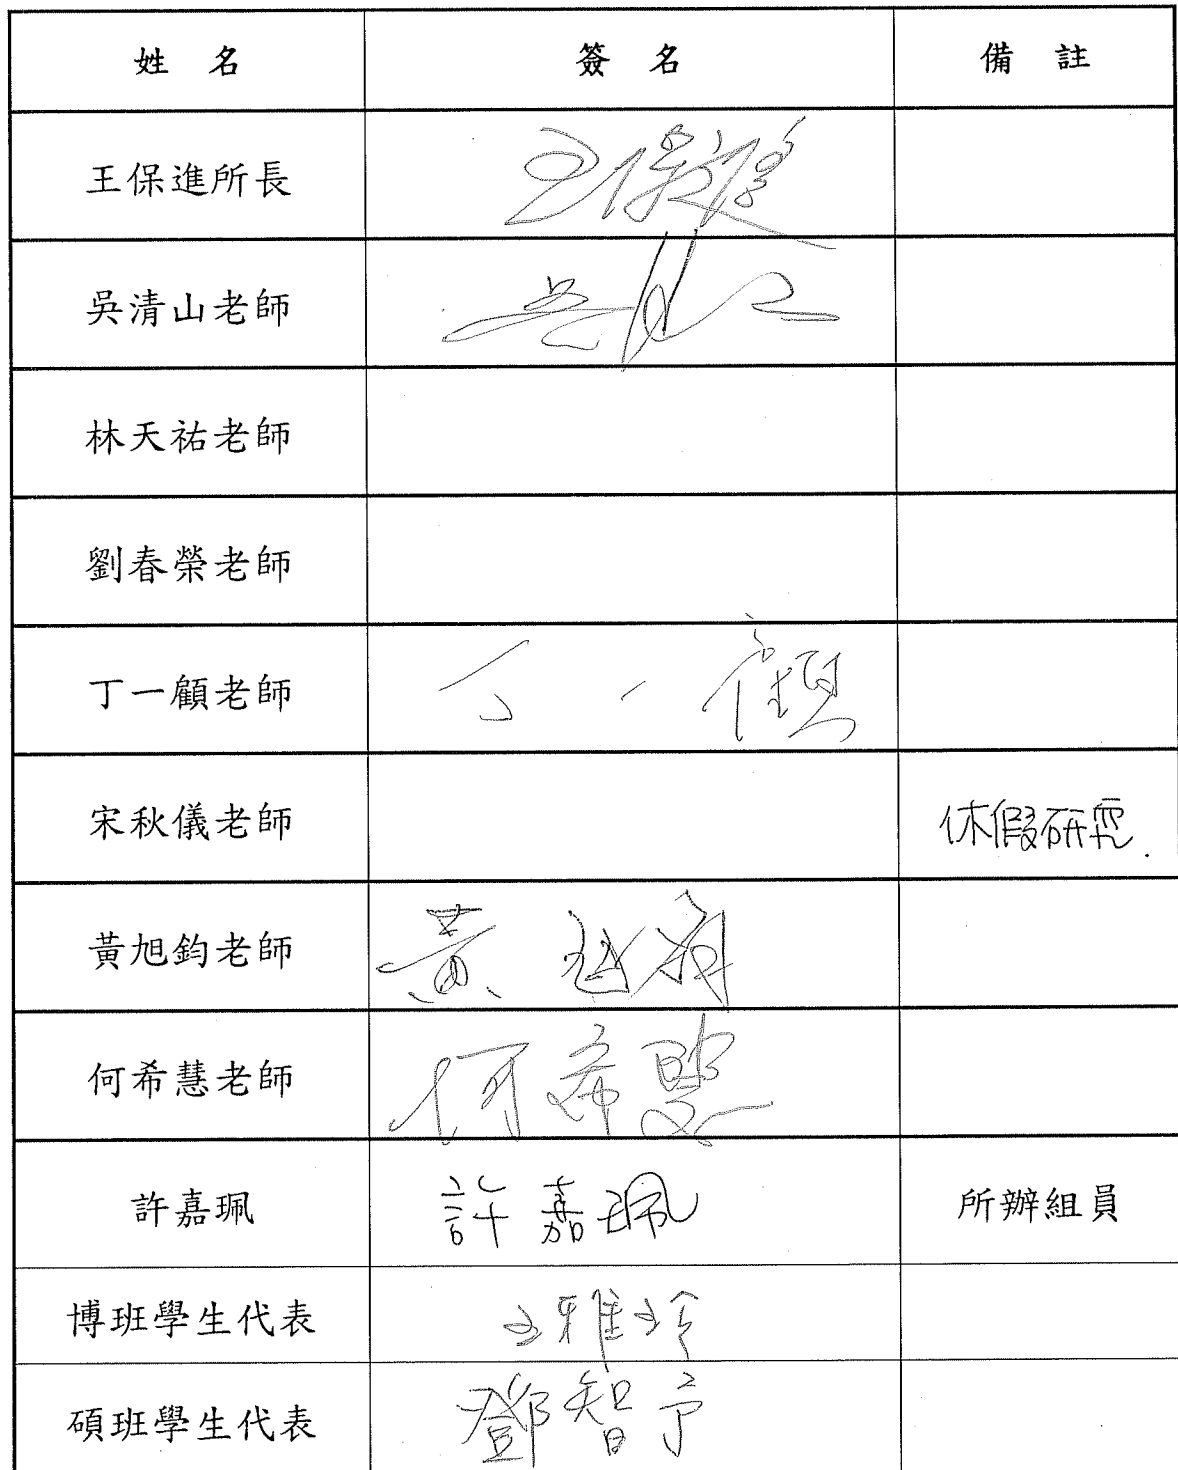 姓 名 簽 名 備 註
王保進所長 王保進
吳清山老師 吳清山
林天祐老師
劉春榮老師
丁一顧老師 丁一顧
宋秋儀老師 休假研究.
黃旭鈞老師 黃旭鈞
何希慧老師 何希慧
許嘉珮 許嘉珮 所辦組員
博班學生代表 王雅玲
碩班學生代表 鄧智予